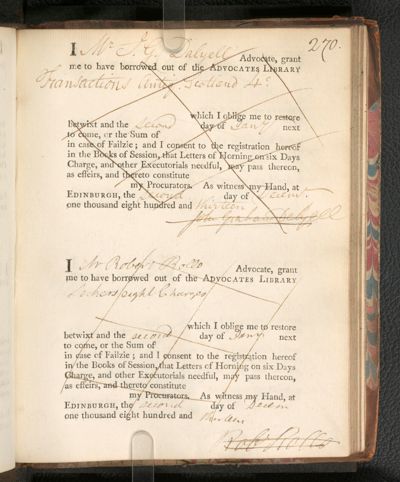 270.
I Mr J. G. Dalyell Advocate, grant
me to have borrowed out of the ADVOCATES LIBRARY
Transactions Antiq. Scotland 4º
which I oblige me to restore
betwixt and the second day of Jany next
to come, or the Sum of
in case of Failzie; and I consent to the registration hereof
in the Books of Session, that Letters of Horning on six Days
Charge, and other Executorials needful, may pass thereon,
as effeirs, and thereto constitute
my Procurators. As witness my Hand, at
EDINBURGH, the second day of Decemr.
one thousand eight hundred and thirteen
John Graham Dalyell
I Mr Robert Rollo Advocate, grant
me to have borrowed out of the ADVOCATES LIBRARY
eight
which I oblige me to restore
betwixt and the second day of Jany next
to come, or the Sum of
in case of Failzie; and I consent to the registration hereof
in the Books of Session, that Letters of Horning on six Days
Charge, and other Executorials needful, may pass thereon,
as effeirs, and thereto constitute
my Procurators. As witness my Hand, at
EDINBURGH, the second day of Decem
one thousand eight hundred and thirteen
Robt Rollo